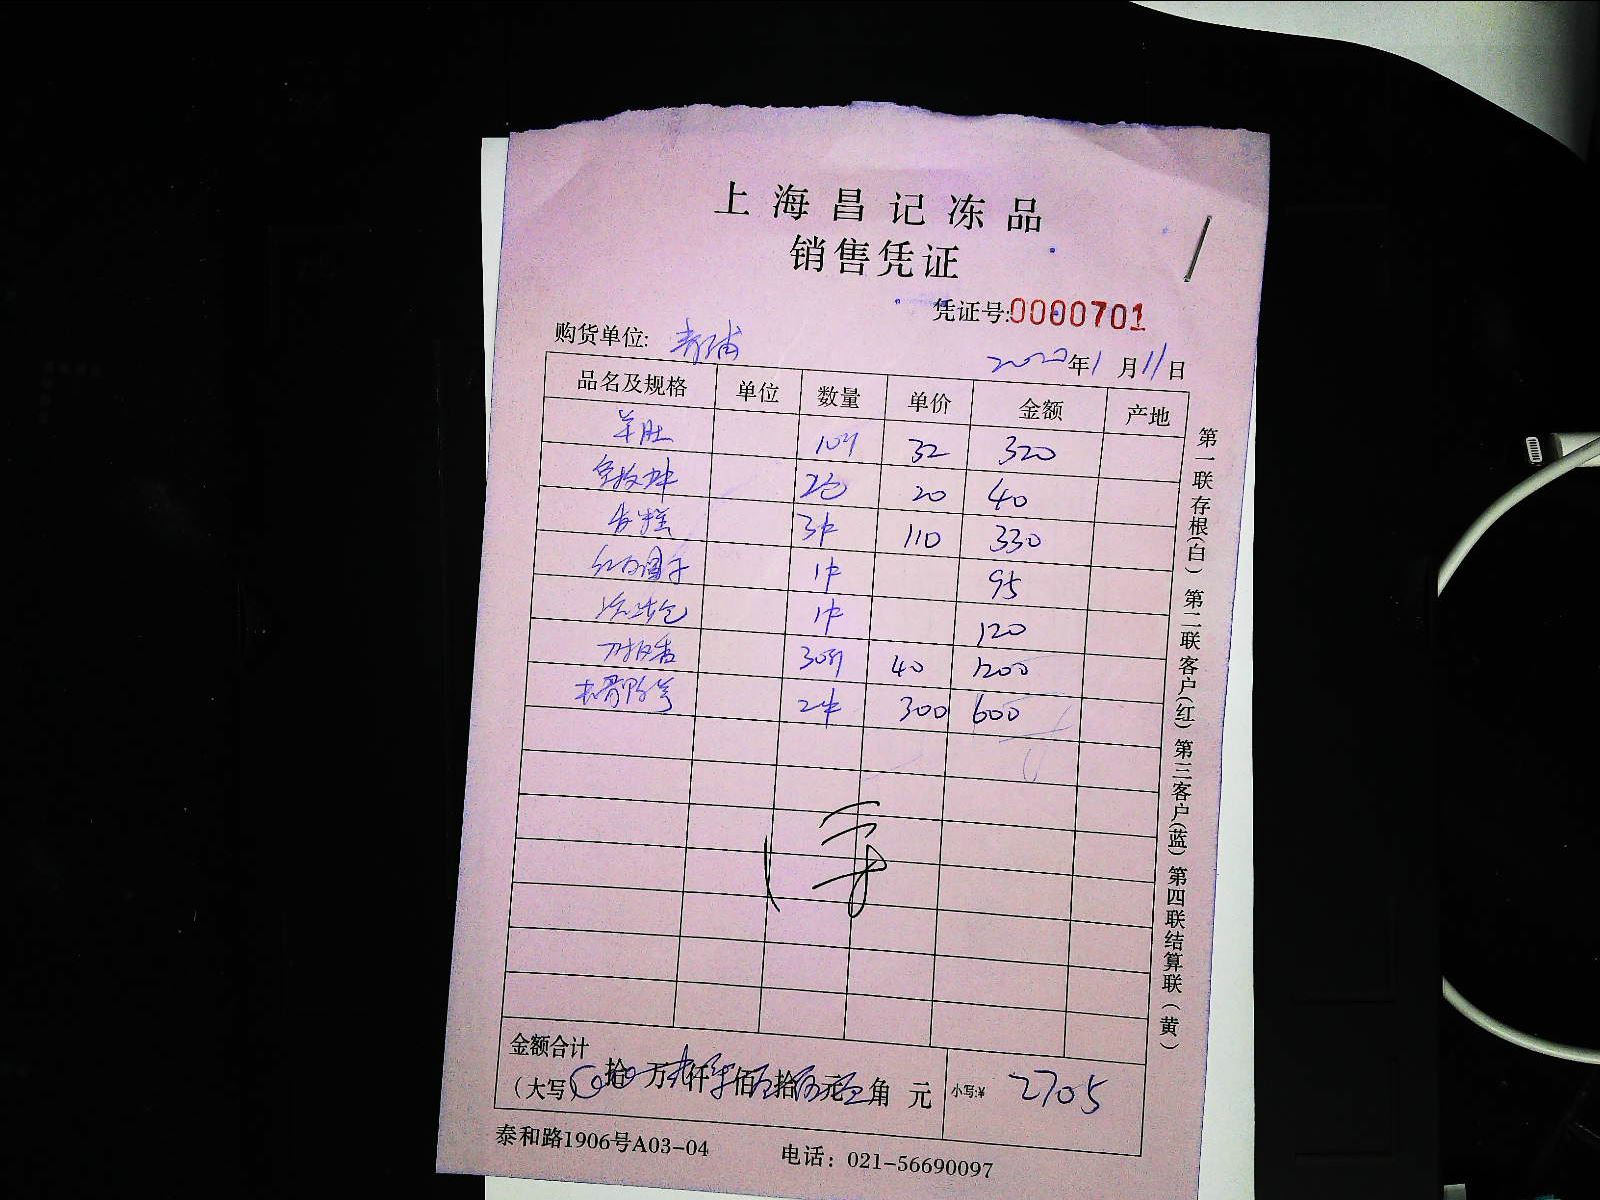 上海昌记冻品
销售凭证
凭证号:0000701
购货单位: 青浦
2020年1月11日
品名及规格 单位 数量 单价 金额 产地
羊肚 10斤 32 320
20 40
3件 110 330
红白圆子 1件 95
1件 120
30斤 40 1200
2件 300 600
金额合计
(大写) 拾 万 仟 佰 拾 元 角 元 小写:¥ 2705
泰和路1906号A03-04 电话：021-56690097
第一联存根(白) 第二联客户(红) 第三客户(蓝) 第四联结算联(黄)